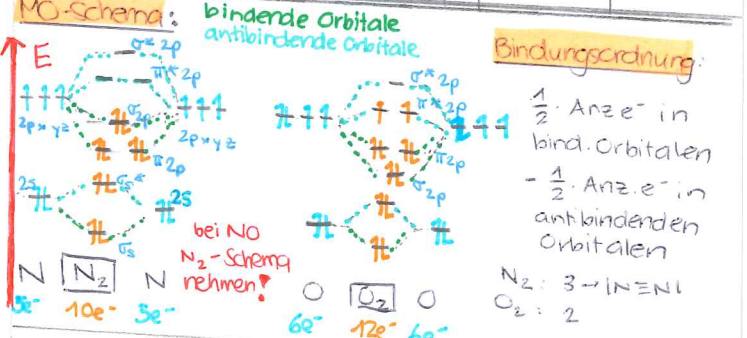 MO-Schema:
bindende Orbitale
antibindende Orbitale
E
σ* 2p
π* 2p
σ2p
2p x y z
2p x y z
π2p
2s
σs*
2S
σs
N N₂ N
5e⁻ 10e⁻ 5e⁻
bei NO
N₂-Schema
nehmen!
σ* 2p
π* 2p
π2p
σ2p
O O₂ O
6e⁻ 12e⁻ 6e⁻
Bindungsordnung:
1/2 · Anz e⁻ in
bind. Orbitalen
- 1/2 · Anz. e⁻ in
antibindenden
Orbitalen
N₂: 3 → |N≡N|
O₂: 2